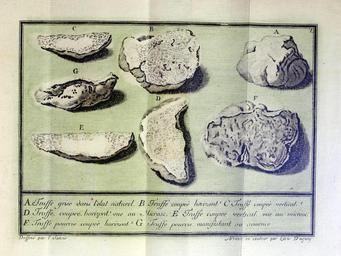 C
B
A
G
D
F
E
A Truffe grise dans l'etat naturel. B Truffe coupée horizont. C Truffe coupée vertical.
D Truffe coupée, horizont. vue au Microsc. E Truffe coupée vertical. vue au microsc.
F Truffe pourrie coupée horizont. G Truffe pourrie
Dessiné par l'Auteur